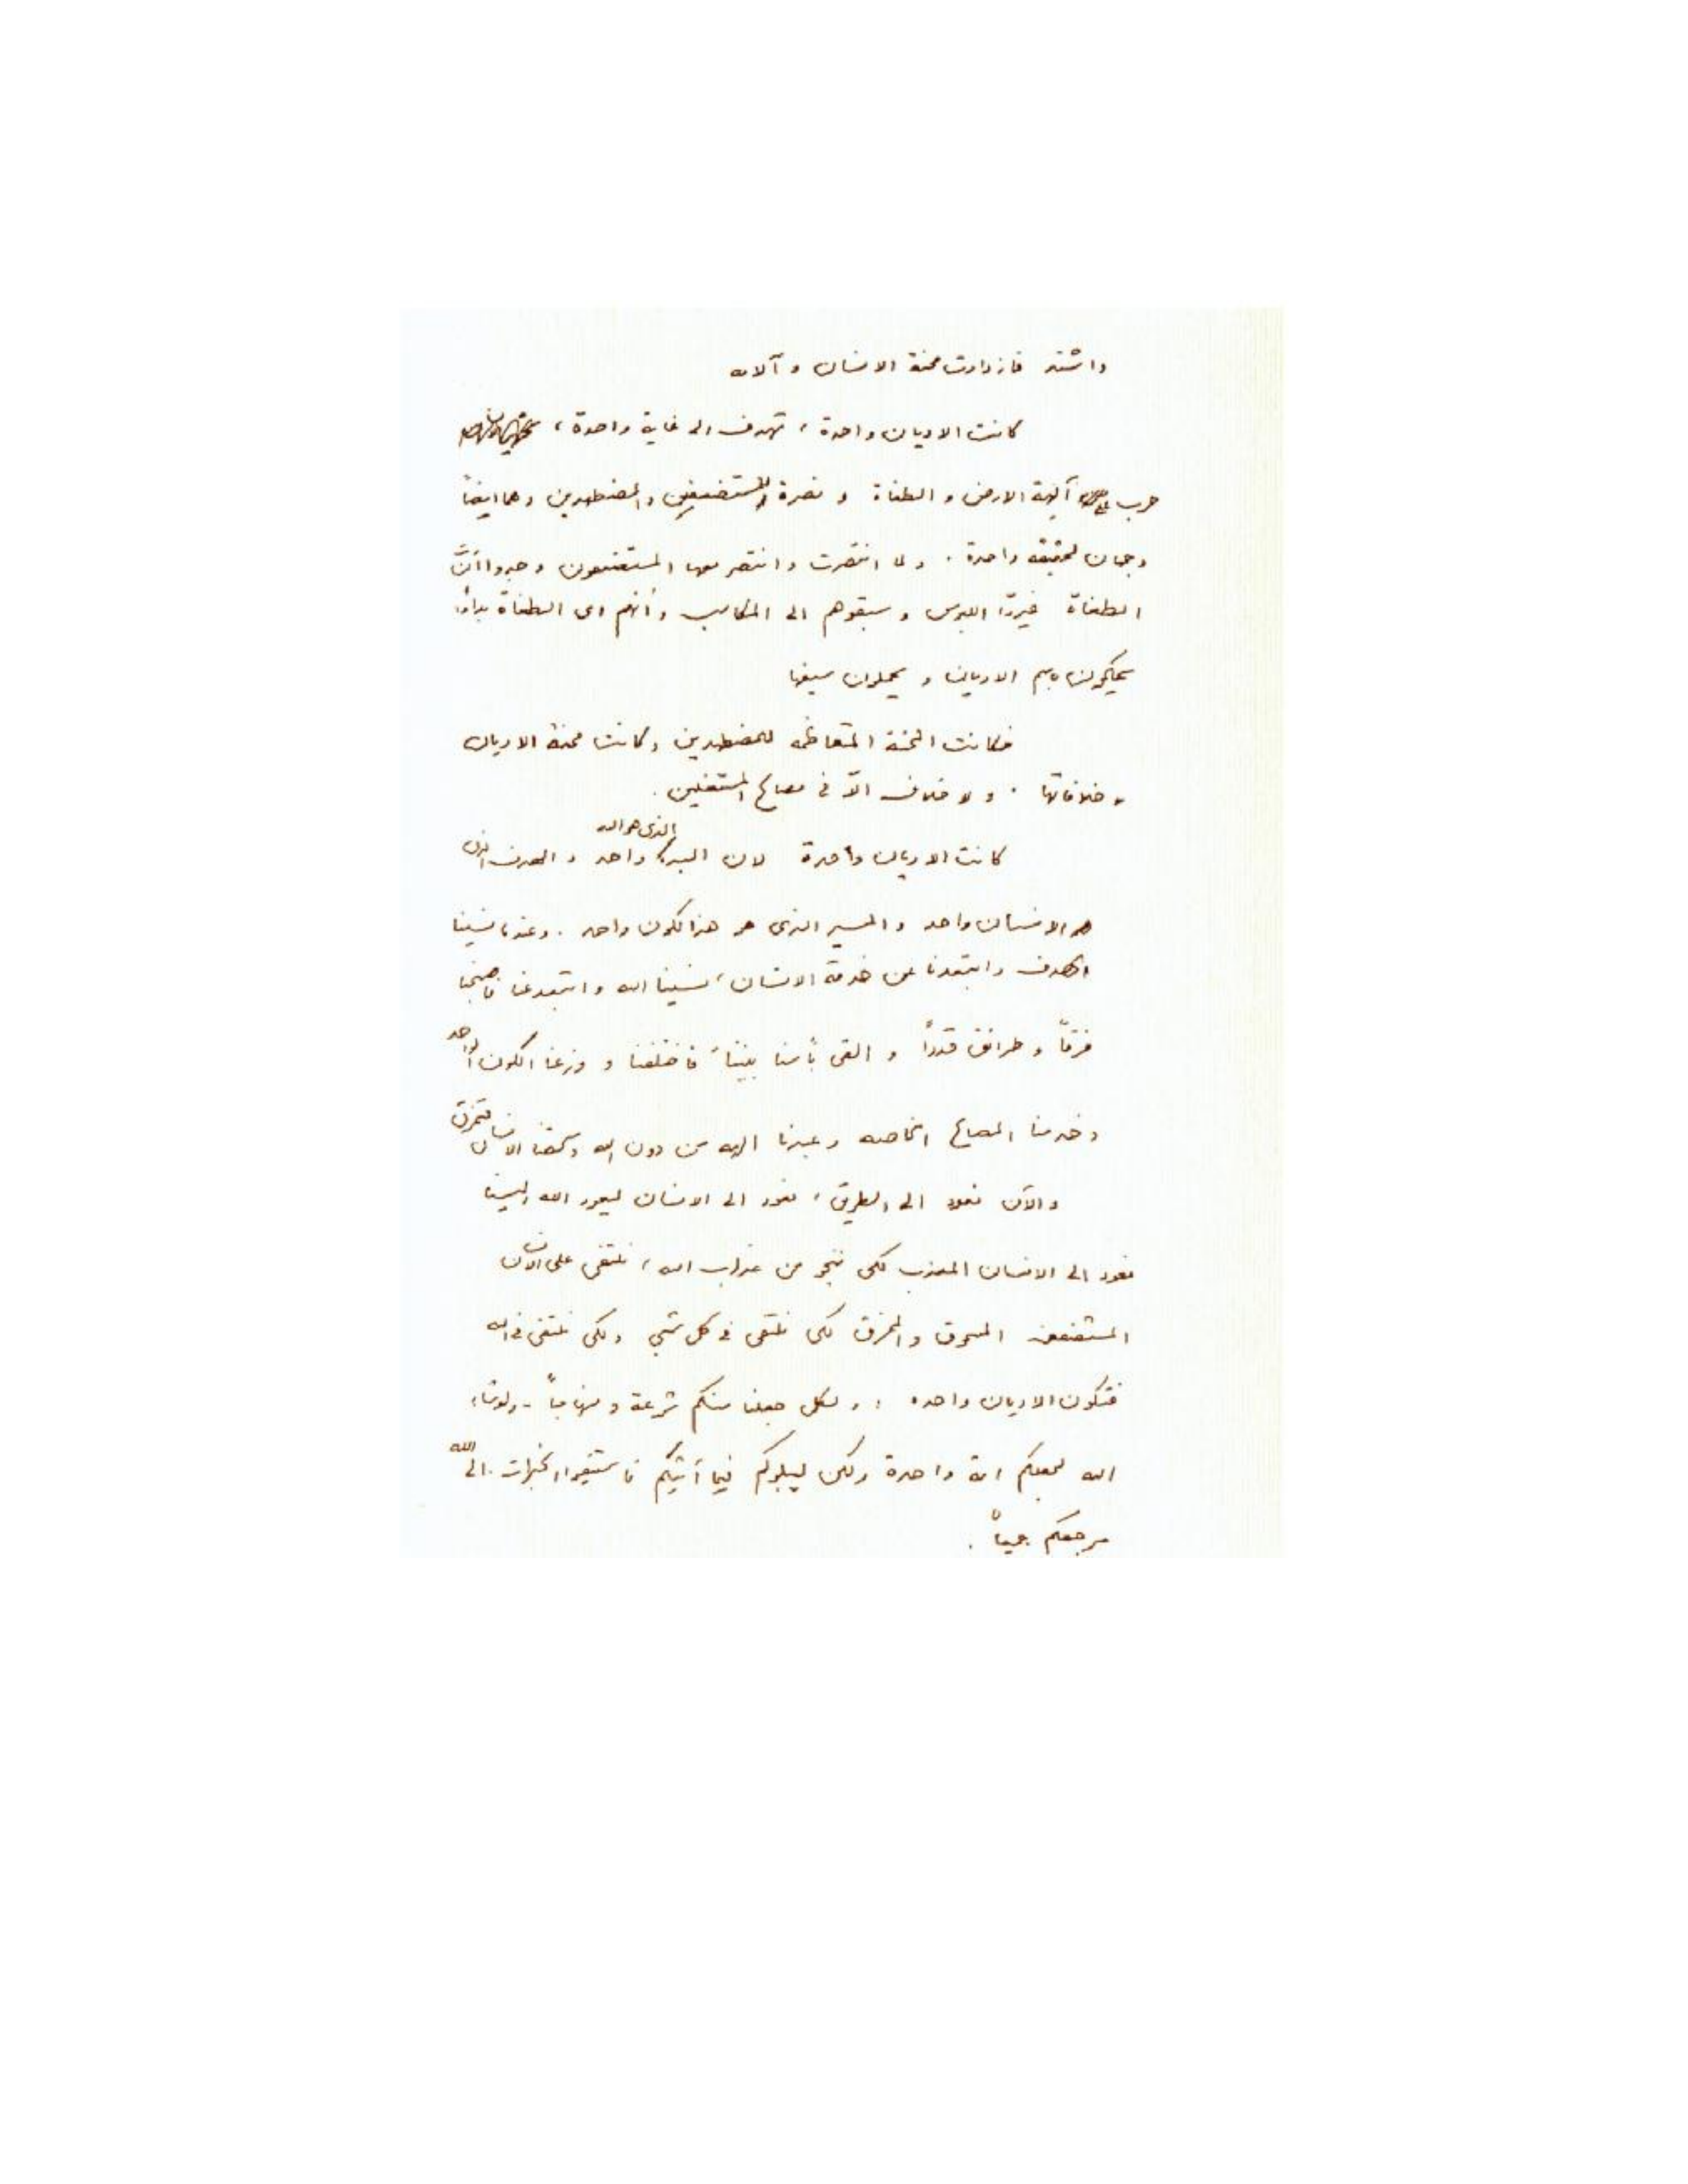 واشتد فازدادت محنة الانسان و آلامه
كانت الاديان واحدة ، تهدف الى غاية واحدة ،
حرب على آلهة الارض و الطغاة و نصرة للمستضعفين والمضطهدين وهما ايضاً
وجهان لحقيقة واحدة . ولما انتصرت وانتصر معها المستضعفون وجدوا أنّ
الطغاة غيروا اللبوس و سبقوهم الى المكاسب و أنهم اى الطغاة بدأوا
يحكمون باسم الاديان و يحملون سيفها
فكانت المحنة المتعاظمه للمضطهدين وكانت محنة الاديان
و خلافاتها . و لا خلاف الاّ فى مصالح المستغلين .
كانت الاديان واحدة لان البدء الذى هو الله واحد و الهدف الذى
هو الانسان واحد و المسير الذى هو هذا الكون واحد . وعندما نسينا
الهدف وابتعدنا عن خدمة الانسان ، نسينا الله وابتعد عنا فاصبحنا
فرقاً و طرائق قدداً و القى بأسنا بيننا فاختلفنا و وزعنا الكون الواحد
وخدمنا المصالح الخاصه وعبدنا الهه من دون الله وسحقنا الانسان فتمزق
والآن نعود الى الطريق ، نعود الى الانسان ليعود الله الينا
نعود الى الانسان المعذب لكى ننجو من عذاب الله ، نلتقى على الانسان
المستضعف المسحوق و الممزق لكى نلتقى فى كل شىء ولكى نلتقى فى الله
فتكون الاديان واحده : ولكل جعلنا منكم شرعة و منهاجاً - ولوشاء
الله لجعلكم امة واحدة ولكن ليبلوكم فيما آتيكم فاستبقوا الخيرات . الى الله
مرجعكم جميعاً .